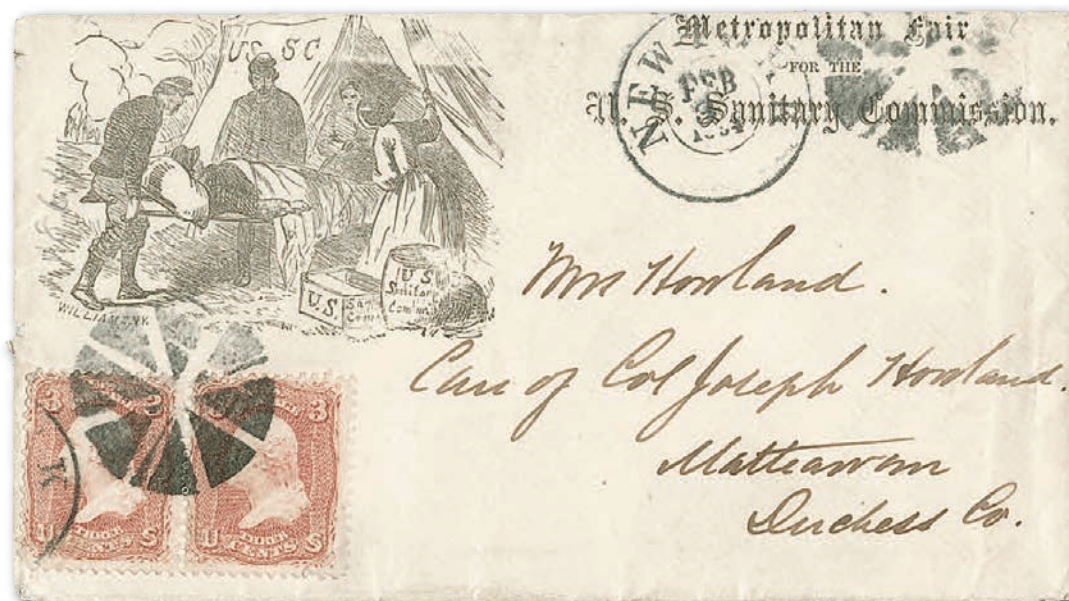 Metropolitan Fair
FOR THE
U. S. Sanitary Commission.
NEW
FEB
U S S C
U.S.
San
Com
U S
Sanitary
WILLIAMS.N.Y.
Mrs Howland.
Care of Col Joseph Howland.
Matteawan
Duchess Co.
3
3
U THREE CENTS S
U THREE CENTS S
K